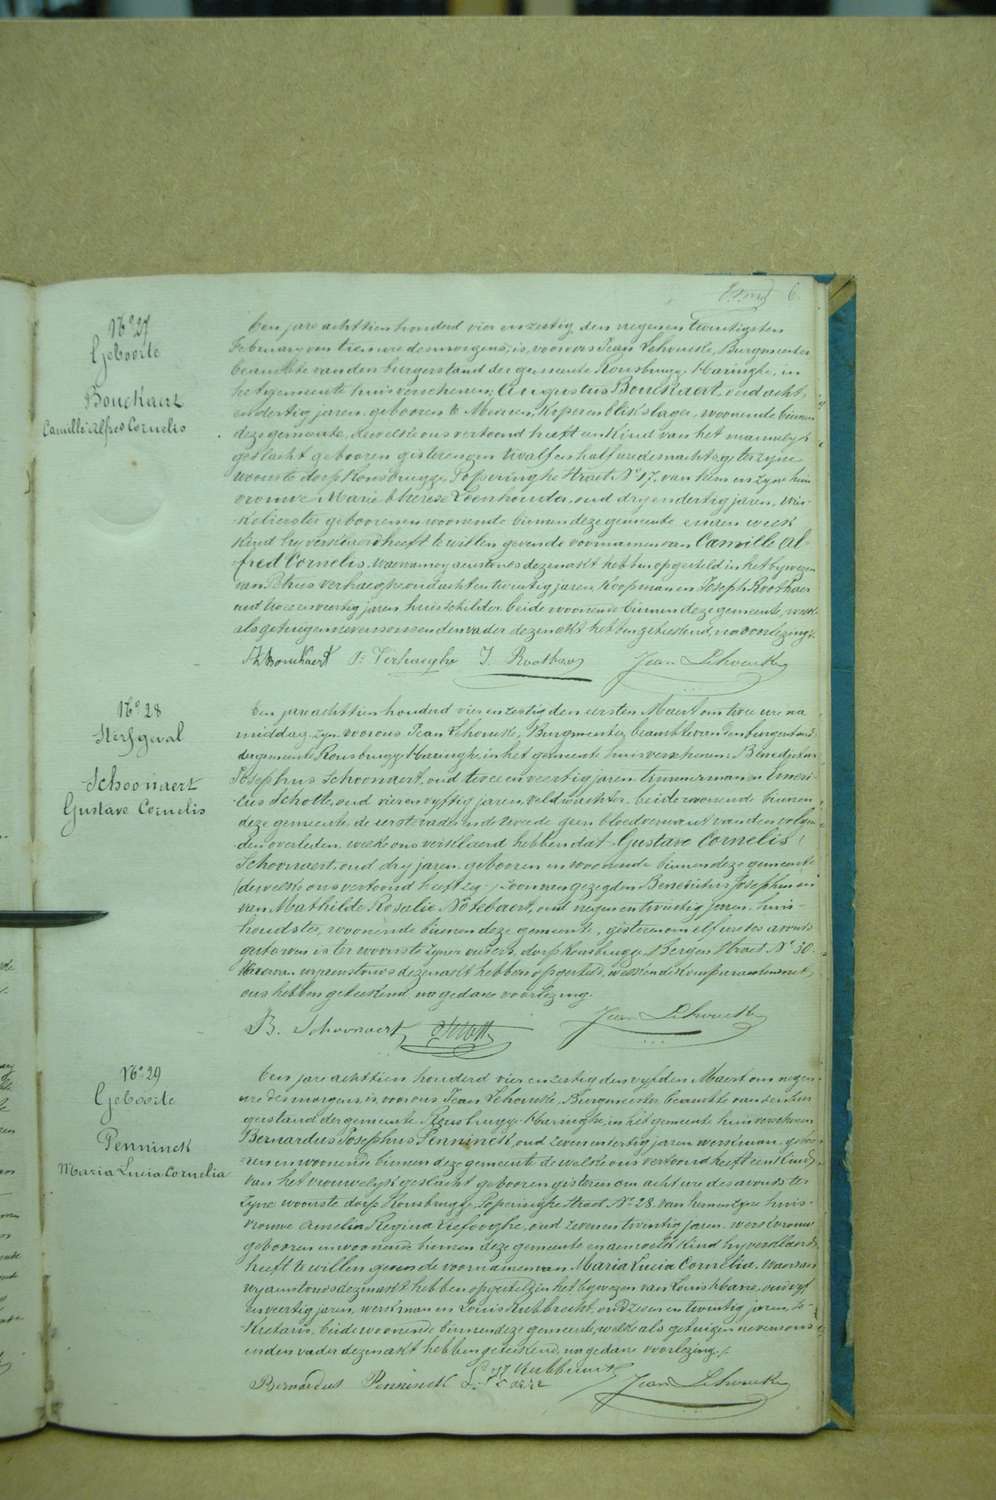 6.
N° 27
Geboorte
Bouckaert
Camille Alfred Cornelis
Een jare achttien honderd vier en zestig den negen en twintigsten
February van tien ure des morgens, is, voor ons Jean Lehoucke, Burgmeester
beambte van den burgerstand der gemeente Rousbrugge Haringhe, in
het gemeente huis verschenen, Augustus Bouckaert, oud acht
en dertig jaren, geboren te Meenen, koper en blikslager, woonende binnen
deze gemeente, dewelke ons vertoond heeft een kind van het mannelyk
geslacht geboren gisteren en twalf en half ure des nachts, t zyne
woonste dorp Rousbrugge, Poperinghe Straet N° 17, van hem en zyne huis
vrouwe Marie Therese Leenhouder, oud dry en dertig jaren, win-
kelierster geboren en woonende binnen deze gemeente en aen welk
kind hy verklaerd heeft te willen geven de voornamen van Camille Al-
fred Cornelis. Waervan wy aenstonds dezen akt hebben opgesteld in het bywezen
van Petrus Verhaeghe, oud acht en twintig jaren, koopman en Joseph Roothaer
oud twee en veertig jaren huisschilder, beide woonende binnen deze gemeente, welke
als getuigen nevens ons en den vader dezen akt hebben geteekend, na voorlezing.
Bouckaert P. Verhaeghe J. Roothaer Jean Lehoucke
N° 28
Sterfgeval
Schoonaert
Gustave Cornelis
Een jare achttien honderd vier en zestig den eersten Maert om twee ure na
middag, zyn voor ons Jean Lehoucke, Burgmeester, beambte van den burgerstand
der gemeente Rousbrugge Haringhe, in het gemeente huis verschenen Benedictus
Josephus Schoonaert, oud twee en veertig jaren timmerman en Ameri-
cus Schott, oud vier en vyftig jaren, veldwachter, beide woonende binnen
deze gemeente, de eerste vader en de tweede geen bloedverwant van den volgen
den overleden, welke ons verklaerd hebben dat Gustave Cornelis
Schoonaert, oud dry jaren, geboren en woonende binnen deze gemeente
zoon van gezegden Benedictus Josephus en
van Mathilde Rosalie Notebaert, oud negen en twintig jaren, huis-
houdster, woonende binnen deze gemeente, gisteren om elf ure des avonds
gestorven is ter woonste zyner ouders, dorp Rousbrugge Bergen Straet N° 30.
Waervan wy aenstonds dezen akt hebben opgesteld, welken de komparanten met
ons hebben geteekend, na gedane voorlezing.
B. Schoonaert Schott Jean Lehoucke
N° 29
Geboorte
Penninck
Maria Lucia Cornelia
Een jare achttien honderd vier en zestig den vyfden Maert om negen
ure des morgens, is voor ons Jean Lehoucke, Burgmeester beambte van den bur
gerstand der gemeente Rousbrugge Haringhe, in het gemeente huis verschenen
Bernardus Josephus Penninck, oud zeven en dertig jaren, werkman, gebo-
ren en woonende binnen deze gemeente dewelke ons vertoond heeft een kind
van het vrouwelyk geslacht geboren gisteren om acht ure des avonds te
zyne woonste dorp Rousbrugge, Poperinghe straet N° 28 van hem en zyne huis-
vrouwe Amelia Regina Liefooghe, oud zeven en twintig jaren, werkvrouw
geboren en woonende binnen deze gemeente en aen welk kind hy verklaerd
heeft te willen geven de voornamen van Maria Lucia Cornelia. Waervan
wy aenstonds dezen akt hebben opgesteld in het bywezen van Louis Ebarre, oud vyf
en veertig jaren, werkman en Louis Rubbrecht, oud zes en twintig jaren, se-
kretaris, beide woonende binnen deze gemeente, welke als getuigen nevens ons
en den vader dezen akt hebben geteekend, na gedane voorlezing.
Bernardus Penninck L. Rubbrecht Jean Lehoucke